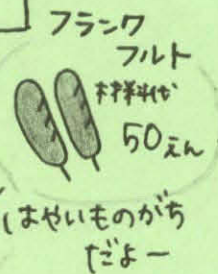 フランク
フルト
材料代
50えん
はやいものがち
だよー